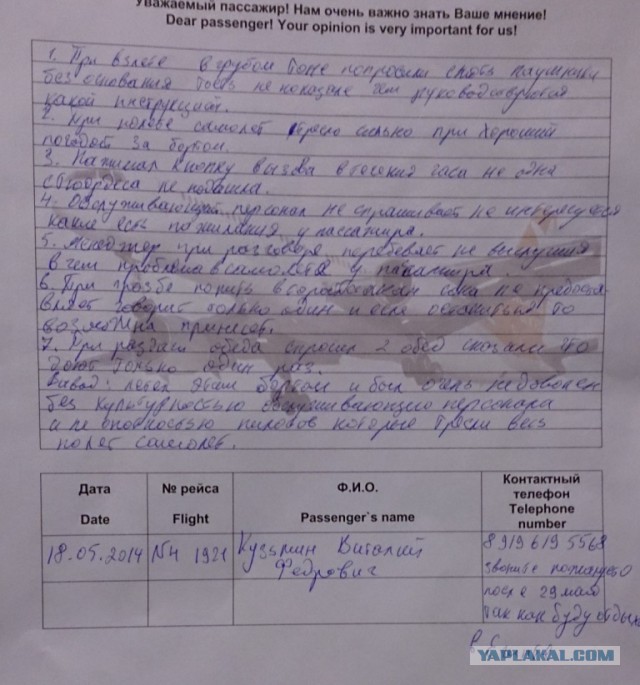 Уважаемый пассажир! Нам очень важно знать Ваше мнение!
Dear passenger! Your opinion is very important for us!
1. При взлете в грубом тоне попросили снять наушники
без основания
какой инструкцией.
2. При полете самолет трясло сильно при хороший
погодой за бортом.
3. Нажимал кнопку вызова в течении часа не одна
не подошла.
4. Обслуживающий персонал не спрашивает не интересуется
какие есть пожилания у пассажира.
5. Менеджер при разговоре перебевает не выслушив
в чем проблема у
6. При
говорит только один и если останиться то
возможна принесов.
7. При раздаче обеда спросил 2 обед сказали что
дают только один раз.
Вывод: летел этим бортом и был очень недоволен
без культурностью обслуживающего персонала
и не опобностью пилотов которые трясли весь
полет самолет.
Дата
Date
№ рейса
Flight
Ф.И.О.
Passenger`s name
Контактный
телефон
Telephone
number
18.05.2014
N4 1921
Кузьмин Виталий
Федрович
8 919 619 5568
звоните пожалуйсто
после 29 мая
так как буду отдых
YAPLAKAL.COM